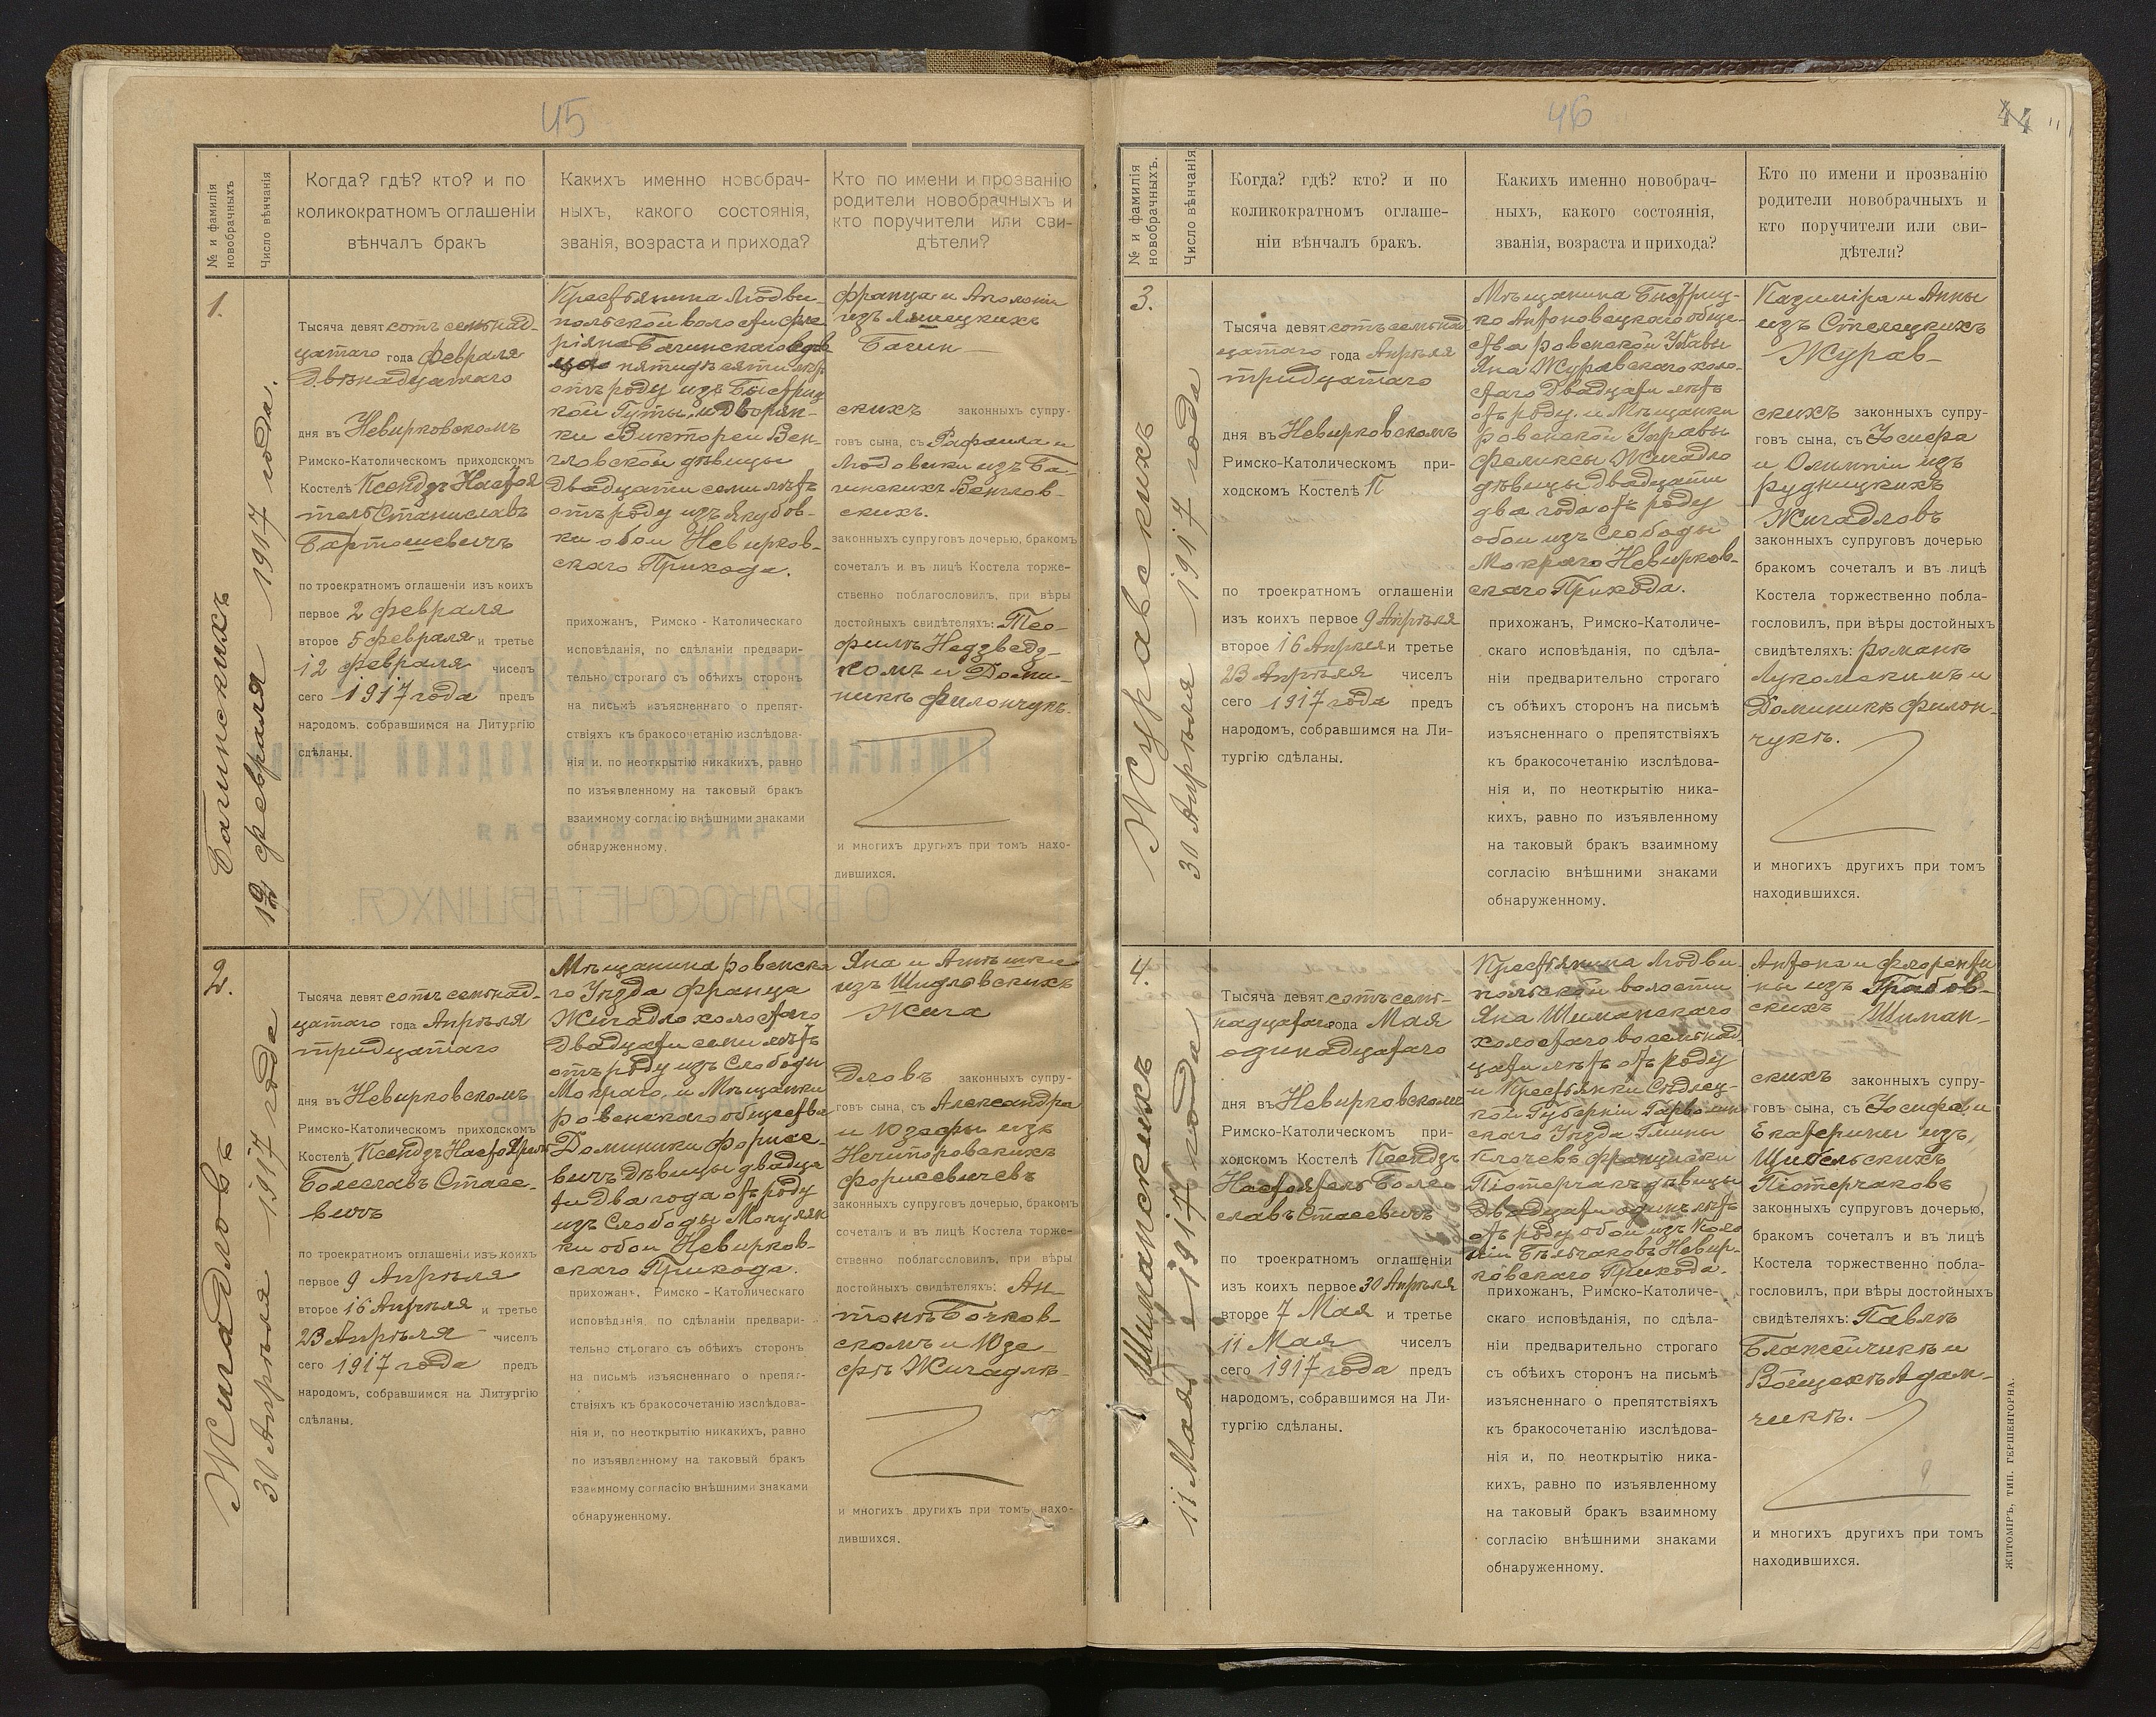 45
№ и фамилія
новобрачныхъ
Число вѣнчанія
Когда? гдѣ? кто? и по
коликократномъ оглашеніи
вѣнчалъ бракъ
Какихъ именно новобрач-
ныхъ, какого состоянія,
званія, возраста и прихода?
Кто по имени и прозванію
родители новобрачныхъ и
кто поручители или сви-
дѣтели?
1.
Багинскихъ
12 Февраля 1917 года.
Тысяча девятсотъ семьнад-
цатаго года Февраля
двѣнадцатаго
дня въ Невирковскомъ
Римско-Католическомъ приходскомъ
Костелѣ Ксендзъ Настоя
тель Станиславъ
Бартошевичъ
по троекратномъ оглашеніи изъ коихъ
первое 2 Февраля
второе 5 Февраля и третье
12 Февраля чиселъ
сего 1917 года предъ
народомъ, собравшимся на Литургію
сдѣланы.
Крестьянина Людви-
польской волости Фло
ріана Багинскаго вдов
ца пятидесяти лѣтъ
отъ роду изъ Быстриц
кой Гуты, и Дворян-
ки Викторіи Вен-
гловской дѣвицы
двадцати семи лѣтъ
отъ роду изъ Якубов-
ки обои Невирков-
скаго Прихода.
прихожанъ, Римско - Католическаго
исповѣданія, по сдѣланіи предвари-
тельно строгаго съ обѣихъ сторонъ
на письмѣ изъясненнаго о препят-
ствіяхъ къ бракосочетанію изслѣдова-
нія и, по неоткрытію никакихъ, равно
по изъявленному на таковый бракъ
взаимному согласію внѣшними знаками
обнаруженному.
Франца и Аполоніи
изъ
Багин-
скихъ законныхъ супру-
говъ сына, съ Рафаила и
Людовики изъ Ба-
гинскихъ Венглов-
скихъ.
законныхъ супруговъ дочерью, бракомъ
сочеталъ и въ лицѣ Костела торже-
ственно поблагословилъ, при вѣры
достойныхъ свидѣтеляхъ: Тео-
филѣ Недзведз-
комъ и Доми-
никѣ Филончукѣ.
и многихъ другихъ при томъ нахо-
дившихся.
2.
Жигадловъ
30 Апрѣля 1917 года
Тысяча девятсотъ семьнад-
цатаго года Апрѣля
тридцатаго
дня въ Невирковскомъ
Римско-Католическомъ приходскомъ
Костелѣ Ксендзъ Настоятель
Болеславъ Стасе-
вичъ
по троекратномъ оглашеніи изъ коихъ
первое 9 Апрѣля
второе 16 Апрѣля и третье
23 Апрѣля чиселъ
сего 1917 года предъ
народомъ, собравшимся на Литургію
сдѣланы.
Мѣщанина Ровенска
го Уѣзда Франца
Жигадло холостаго
двадцати семи лѣтъ
отъ роду изъ Слободы
Мокраго, и Мѣщанки
Ровенскаго общества
Доминики Форисе-
вичъ дѣвицы двадца
ти два года отъ роду
изъ Слободы Мочулян
ки обои Невирков-
скаго Прихода.
прихожанъ, Римско - Католическаго
исповѣданія, по сдѣланіи предвари-
тельно строгаго съ обѣихъ сторонъ
на письмѣ изъясненнаго о препят-
ствіяхъ къ бракосочетанію изслѣдова-
нія и, по неоткрытію никакихъ, равно
по изъявленному на таковый бракъ
взаимному согласію внѣшними знаками
обнаруженному.
Яна и Агнѣшки
изъ Шидловскихъ
Жига
дловъ законныхъ супру-
говъ сына, съ Александра
и Юзефы изъ
Нечипоровскихъ
Форисевичевъ
законныхъ супруговъ дочерью, бракомъ
сочеталъ и въ лицѣ Костела торже-
ственно поблагословилъ, при вѣры
достойныхъ свидѣтеляхъ: Ан-
тонѣ Бочков-
скомъ и Юзе-
фѣ Жигадлѣ-
и многихъ другихъ при томъ нахо-
дившихся.
46
44
№ и фамилія
новобрачныхъ.
Число вѣнчанія
Когда? гдѣ? кто? и по
коликократномъ оглаше-
ніи вѣнчалъ бракъ.
Какихъ именно новобрач-
ныхъ, какого состоянія,
званія, возраста и прихода?
Кто по имени и прозванію
родители новобрачныхъ и
кто поручители или сви-
дѣтели?
3.
Журавскихъ
30 Апрѣля 1917 года
Тысяча девятсотъ семьнад
цатаго года Апрѣля
тридцатаго
дня въ Невирковскомъ
Римско-Католическомъ при-
ходскомъ Костелѣ К
по троекратномъ оглашеніи
изъ коихъ первое 9 Апрѣля
второе 16 Апрѣля и третье
23 Апрѣля чиселъ
сего 1917 года предъ
народомъ, собравшимся на Ли-
тургію сдѣланы.
Мѣщанина Быстриц-
ко Антоновецкаго обще-
ства Ровенской Управы
Яна Журавскаго холо-
стаго двадцати лѣтъ
отъ роду, и Мѣщанки
Ровенской Управы
Феликсы Жигадло
дѣвицы двадцати
два года отъ роду
обои изъ Слободы
Мокраго Невирков-
скаго Прихода.
прихожанъ, Римско-Католиче-
скаго исповѣданія, по сдѣла-
ніи предварительно строгаго
съ обѣихъ сторонъ на письмѣ
изъясненнаго о препятствіяхъ
къ бракосочетанію изслѣдова-
нія и, по неоткрытію ника-
кихъ, равно по изъявленному
на таковый бракъ взаимному
согласію внѣшними знаками
обнаруженному.
Казиміра и Анны
изъ Стелецкихъ
Журав-
скихъ законныхъ супру-
говъ сына, съ Іосифа
и Олимпіи изъ
Рудницкихъ
Жигадловъ
законныхъ супруговъ дочерью
бракомъ сочеталъ и въ лицѣ
Костела торжественно побла-
гословилъ, при вѣры достойныхъ
свидѣтеляхъ: Романѣ
Лукомскимъ и
Доминикѣ Филон-
чукѣ.
и многихъ другихъ при томъ
находившихся.
4.
Шиманскихъ
11 Мая 1917 года
Тысяча девятсотъ семь-
надцатаго года Мая
одинадцатаго
дня въ Невирковскомъ
Римско-Католическомъ при-
ходскомъ Костелѣ Ксендзъ
Настоятель Боле-
славъ Стасевичъ
по троекратномъ оглашеніи
изъ коихъ первое 30 Апрѣля
второе 7 Мая и третье
11 Мая чиселъ
сего 1917 года предъ
народомъ, собравшимся на Ли-
тургію сдѣланы.
Крестьянина Людви-
польской волости
Яна Шиманскаго
холостаго восемьнад
цати лѣтъ отъ роду
и Крестьянки Сѣдлец-
кой Губерніи Гарволин
скаго Уѣзда Гмины
Клочевъ Францишки
Піотерчакъ дѣвицы
двадцати одинъ лѣтъ
отъ роду обои изъ Коло
ніи Бѣльчаковъ Невир-
ковскаго Прихода.
прихожанъ, Римско-Католиче-
скаго исповѣданія, по сдѣла-
ніи предварительно строгаго
съ обѣихъ сторонъ на письмѣ
изъясненнаго о препятствіяхъ
къ бракосочетанію изслѣдова-
нія и, по неоткрытію ника-
кихъ, равно по изъявленному
на таковый бракъ взаимному
согласію внѣшними знаками
обнаруженному.
Антона и Флоренти
ны изъ Грабов-
скихъ Шиман-
скихъ законныхъ супру-
говъ сына, съ Іосифа и
Екатерины изъ
Щибельскихъ
Піотерчаковъ
законныхъ супруговъ дочерью,
бракомъ сочеталъ и въ лицѣ
Костела торжественно побла-
гословилъ, при вѣры достойныхъ
свидѣтеляхъ: Павлѣ
Блажейчикѣ и
Войцехѣ Адам-
чикѣ.
и многихъ другихъ при томъ
находившихся.
ЖИТОМІРЪ, ТИП. ГЕРШЕНГОРНА.